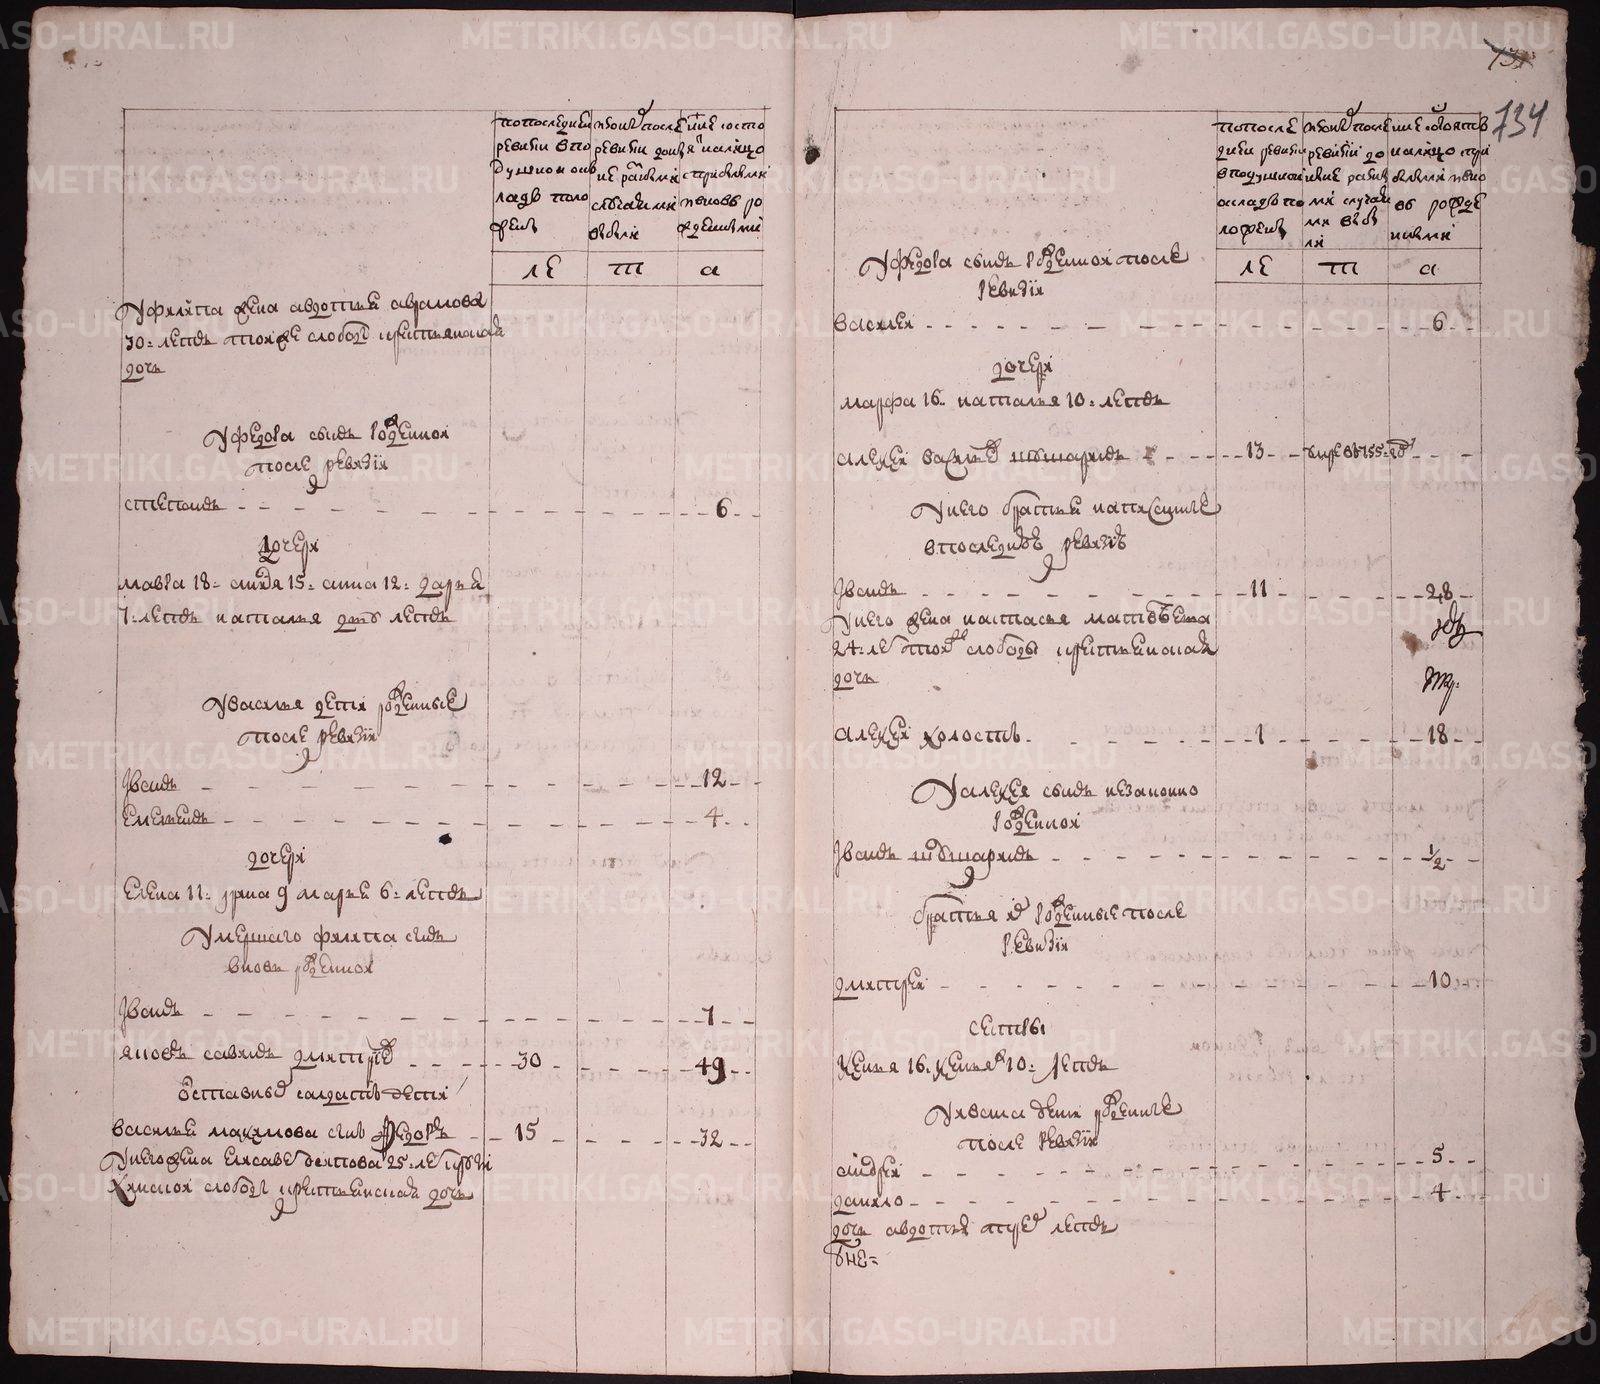 по последней
ревизии в по
душном ок
ладе поло
жено
из оных после
ревизии до ны
не разными
случаями
убыли
ныне состо
я налицо
с прибылми
и вновь ро
жденными
ле т а
У Филипа жена Авдотья Аврамова
30: летъ той же слободы крестьянская
дочь
У Федора сынъ рожденной
после ревизии
Степанъ 6
дочери
Мавра 18 15 Анна 12 Дарья
7 летъ Наталья дву летъ
У Василья дети рожденные
после ревизии
Иванъ 12
Емельянъ 4
дочери
Елена 11 Ирина 9 Марья 6 летъ
Умершаго Филипа сынъ
вновь рожденной
Иванъ 7
Яковъ Савинъ Дмитрей 30 49
салдатъ дети
Василья Максимова сынъ Федоръ 15 32
У него жена Елисаве 25 ле
слободы крестьянская дочь
734
по после
дней ревизии
в подушной
окладе по
ложено
из оных после
ревизии до
ныне разны
ми случаи
ми убы
ли
ныне состоитъ
налицо при
былми и вно
вь рожде
нными
ле т а
У Федора сынъ рожденной после
ревизии
Василей 6
дочери
Марфа 16 Наталья 10 летъ
Алексей 13 умре в 755 год
У него братья написанные
в последней ревизии
Иванъ 11 28
У него жена Настасья Матвеева
24 ле той слободы крестьянская
дочь
Алексей холостъ 1 18
У Алексея сынъ незаконно
рожденной
Иванъ 1/2
братья ж рожденные после
ревизии
Дмитрей 10
сестры
Ксенья 16 Ксенья ж 10 летъ
У Ивана дети рожденные
после ревизии
Андрей 5
Данило 4
дочь Авдотья трех летъ